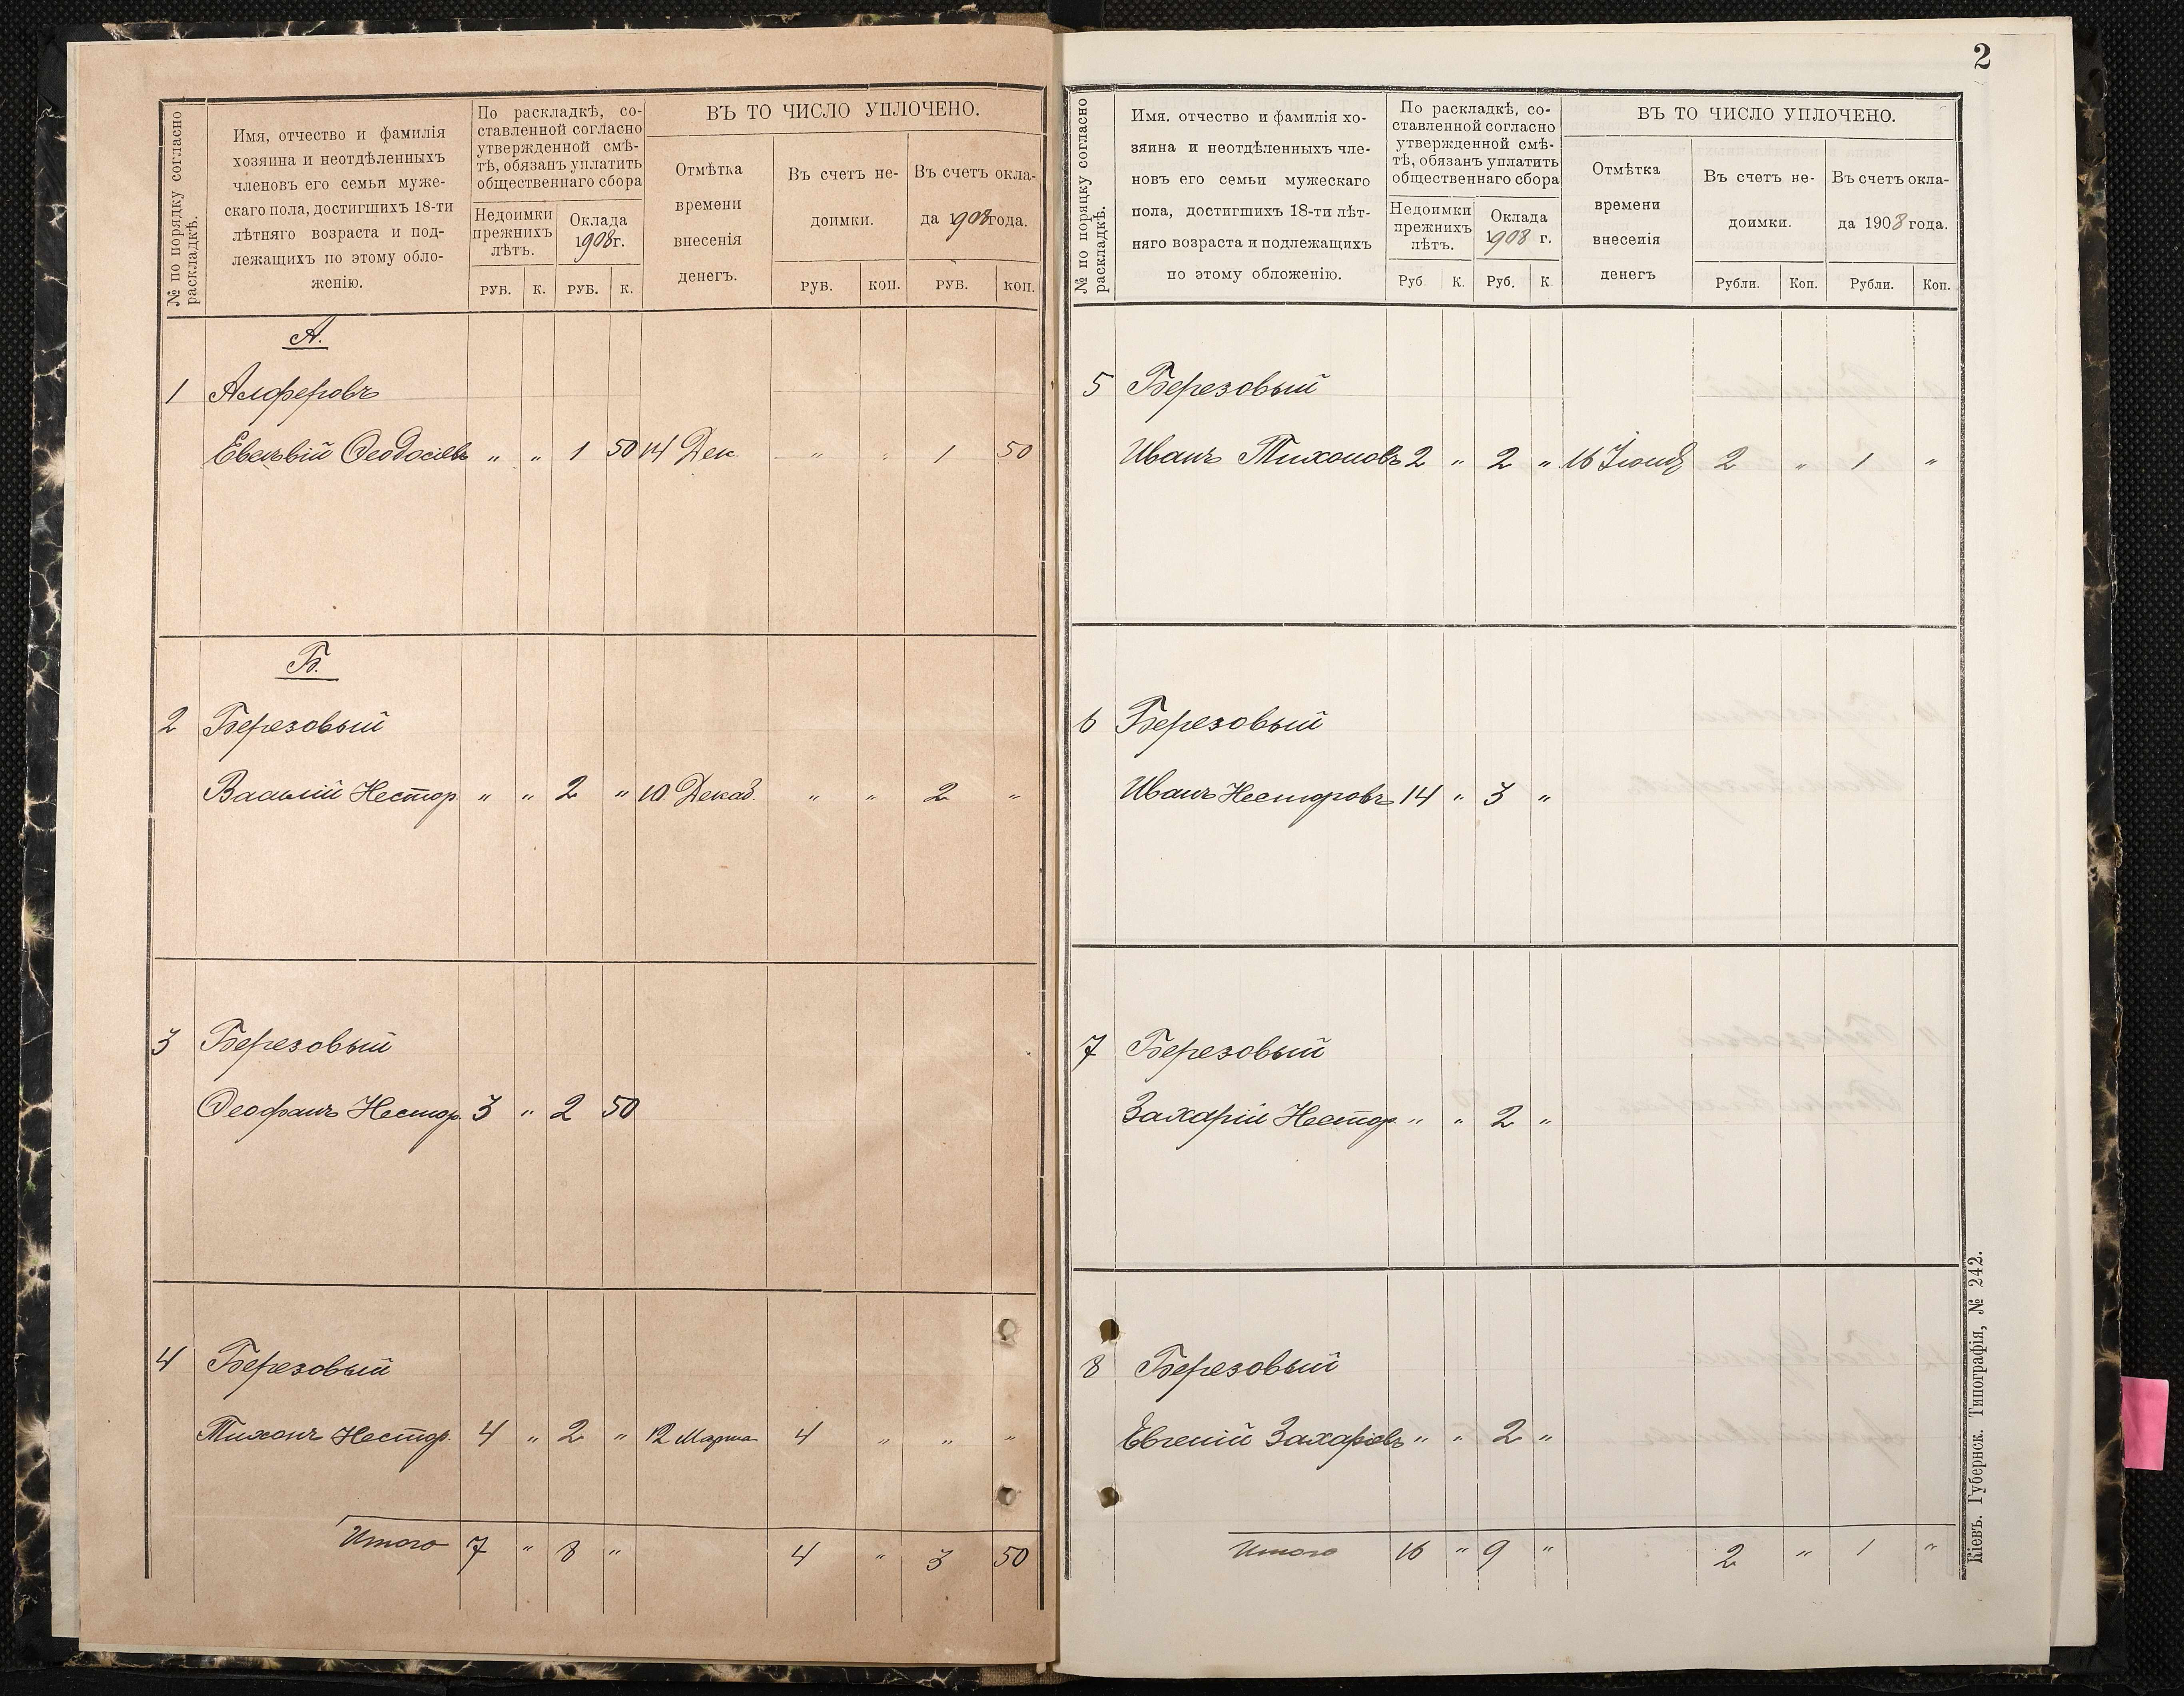 № по порядку согласно
раскладкѣ.
Имя, отчество и фамилія
хозяина и неотдѣленныхъ
членовъ его семьи муже-
скаго пола, достигшихъ 18-ти
лѣтняго возраста и под-
лежащихъ по этому обло-
женію.
По раскладкѣ, со-
ставленной согласно
утвержденной смѣ-
тѣ, обязанъ уплатить
общественнаго сбора
Недоимки
прежнихъ
лѣтъ.
Оклада
1908 г.
РУБ. К. РУБ. К.
ВЪ ТО ЧИСЛО УПЛОЧЕНО.
Отмѣтка
времени
внесенія
денегъ.
Въ счетъ не-
доимки.
Въ счетъ окла-
да 1908 года.
РУБ. КОП. РУБ. КОП.
А.
1 Алферовъ
Феодосіевъ „ „ 1 50 14 Дек „ „ 1 50
Б.
2 Березовый
Василій Нестор. „ „ 2 „ 10 Декаб. „ „ 2 „
3 Березовый
Феофанъ Нестор. 3 „ 2 50
4 Березовый
Тихонъ Нестор. 4 „ 2 „ 12 Марта 4 „ „ „
Итого 7 „ 8 „ 4 „ 3 50
2
№ по порядку согласно
раскладкѣ.
Имя. отчество и фамилія хо-
зяина и неотдѣленныхъ чле-
новъ его семьи мужескаго
пола, достигшихъ 18-ти лѣт-
няго возраста и подлежащихъ
по этому обложенію.
По раскладкѣ, со-
ставленной согласно
утвержденной смѣ-
тѣ, обязанъ уплатить
общественнаго сбора
Недоимки
прежнихъ
лѣтъ.
Оклада
1908 г.
Руб. К. Руб. К.
ВЪ ТО ЧИСЛО УПЛОЧЕНО.
Отмѣтка
времени
внесенія
денегъ
Въ счетъ не-
доимки.
Въ счетъ окла-
да 1908 года.
Рубли. Коп. Рубли. Коп.
5 Березовый
Иванъ Тихоновъ 2 „ 2 „ 16 2 „ 1 „
6 Березовый
Иванъ Несторовъ 14 „ 3 „
7 Березовый
Захарій Нестор. „ „ 2 „
8 Березовый
Евгеній Захаріевъ „ „ 2 „
Итого 16 „ 9 „ 2 „ 1 „
Кіевъ. Губернск. Типографія, № 242.